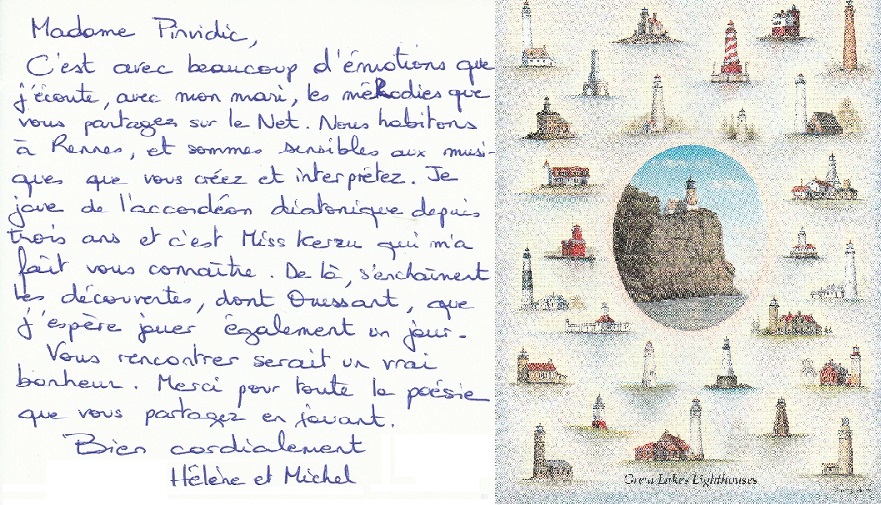 Madame Pinvidic,
C'est avec beaucoup d'émotions que
j'écoute, avec mon mari, les mélodies que
vous partagez sur le Net. Nous habitons
à Rennes, et sommes sensibles aux musi-
ques que vous créez et interprétez. Je
joue de l'accordéon diatonique depuis
trois ans et c'est Miss Kerzu qui m'a
fait vous connaître. De là, s'enchaînent
les découvertes, dont Ouessant, que
j'espère jouer également un jour.
Vous rencontrer serait un vrai
bonheur. Merci pour toute la poésie
que vous partagez en jouant.
Bien cordialement
Hélène et Michel
Great Lakes Lighthouses